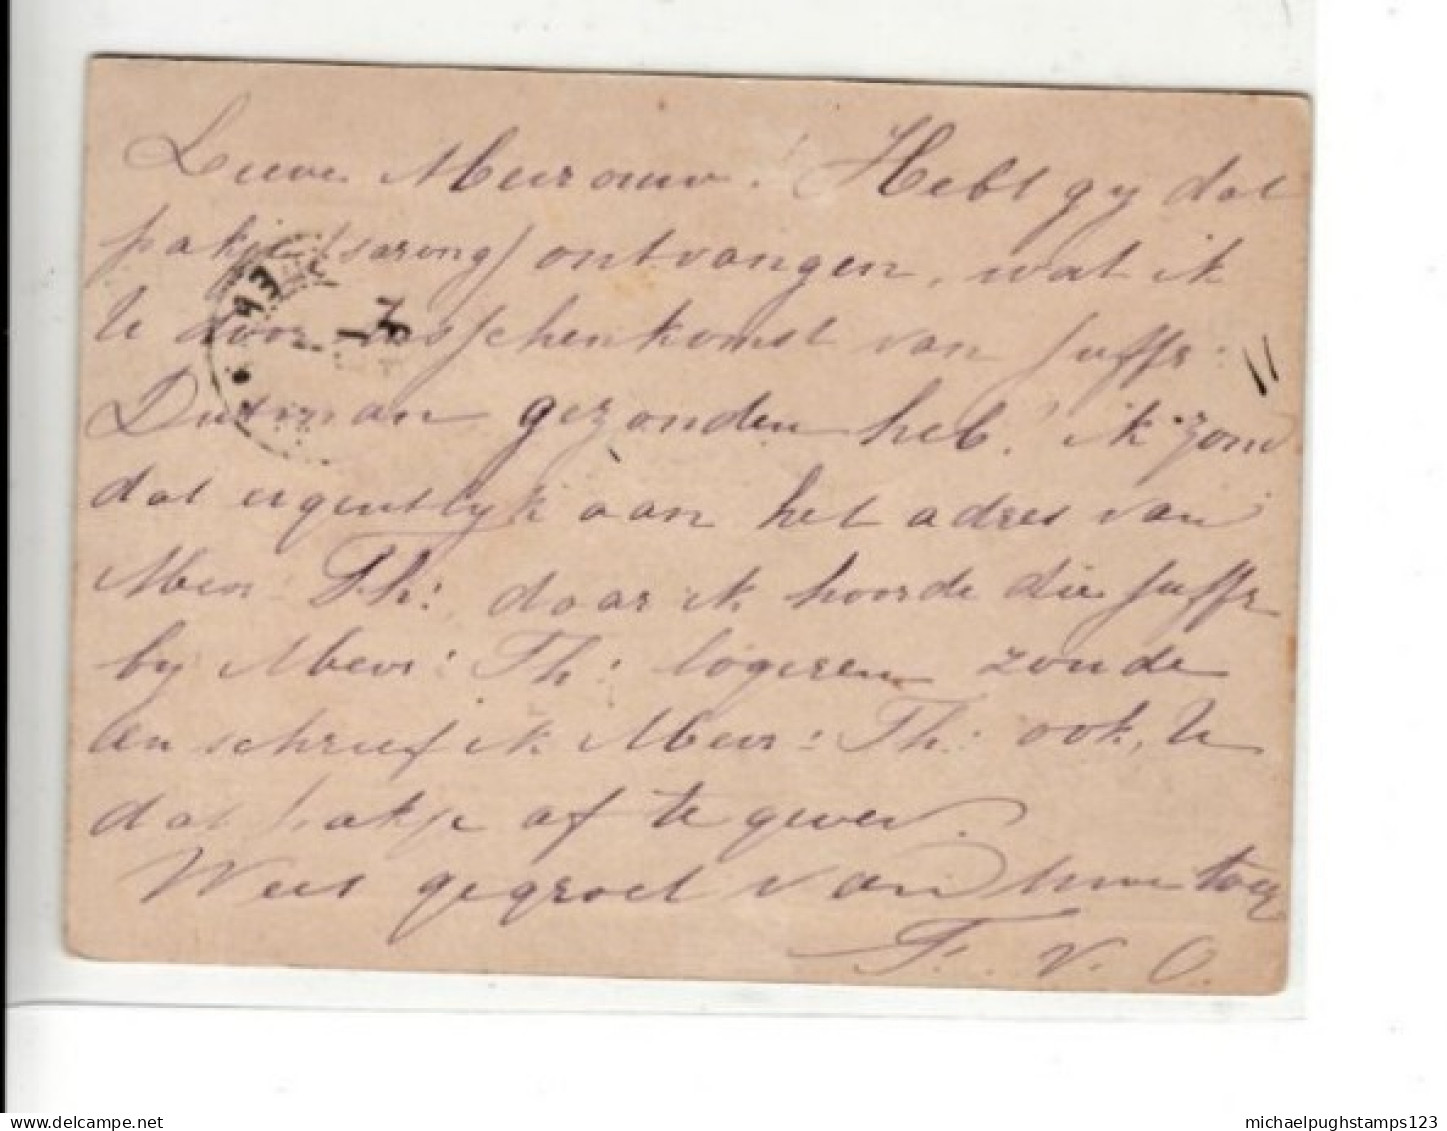 Lieve Mevrouw. Hebt gy dat
pakje (sarong) ontvangen, wat ik
U door tusschenkomst van Juffr:
gezonden heb! ik zond
dat eigentlyk aan het adres van
Mevr Th: daar ik hoorde die Juffr
by Mevr: Th: logeren zoude
en schreef ik Mevr: Th: ook, U
dat pakje af te geven.
Weest gegroet van Uwe
F. v. O.
michaelpughstamps123